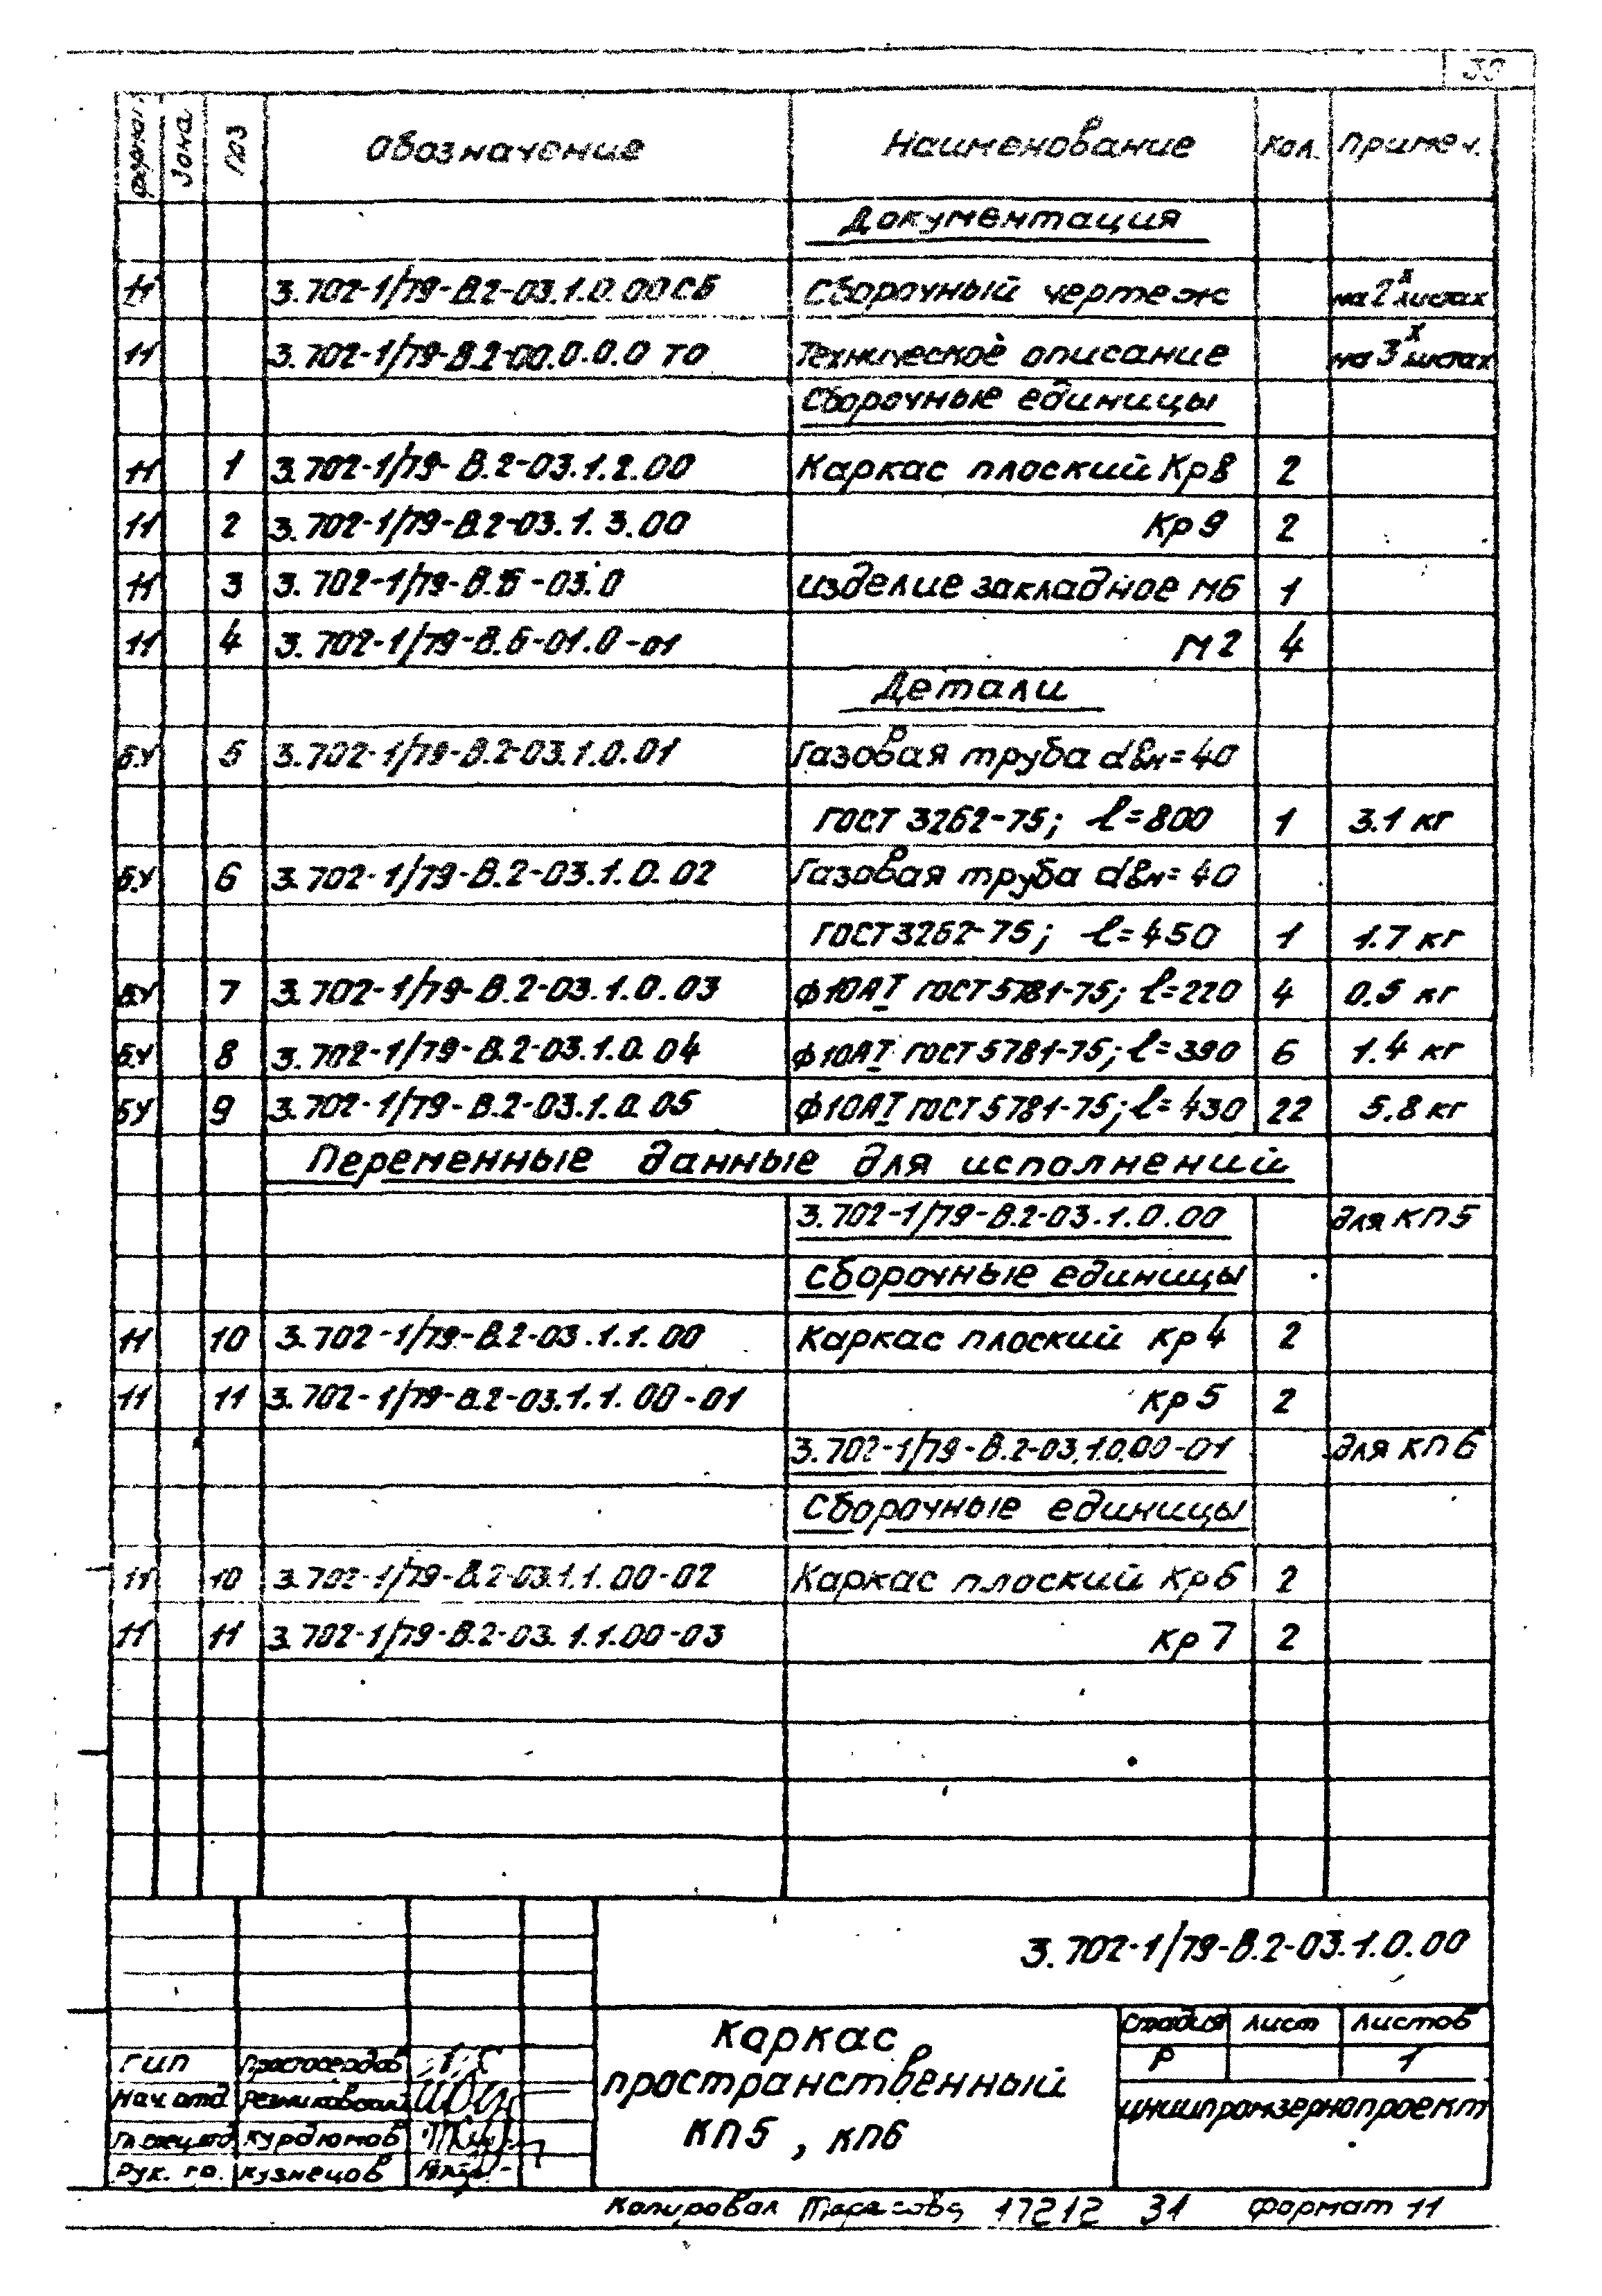 30
Формат Зона Поз Обозначение Наименование Кол. Примеч.
Документация
11 3.702-1/79-В.2-03.1.0.00СБ Сборочный чертеж на 2х листах
11 3.702-1/79-В.2-00.0.0.0 ТО Техническое описание на 3х листах
Сборочные единицы
11 1 3.702-1/79-В.2-03.1.2.00 Каркас плоский Кр8 2
11 2 3.702-1/79-В.2-03.1.3.00 Кр9 2
11 3 3.702-1/79-В.Б-03.0 изделие закладное М6 1
11 4 3.702-1/79-В.Б-01.0-01 М2 4
Детали
Б.Ч 5 3.702-1/79-В.2-03.1.0.01 Газовая труба dвн=40
ГОСТ 3262-75; ℓ=800 1 3.1 кг
Б.Ч 6 3.702-1/79-В.2-03.1.0.02 Газовая труба dвн=40
ГОСТ 3262-75; ℓ=450 1 1.7 кг
Б.Ч 7 3.702-1/79-В.2-03.1.0.03 ф10АI ГОСТ 5781-75; ℓ=220 4 0.5 кг
Б.Ч 8 3.702-1/79-В.2-03.1.0.04 ф10АI ГОСТ 5781-75; ℓ=390 6 1.4 кг
БЧ 9 3.702-1/79-В.2-03.1.0.05 ф10АI ГОСТ 5781-75; ℓ=430 22 5.8 кг
Переменные данные для исполнений
3.702-1/79-В.2-03.1.0.00 для КП5
Сборочные единицы
11 10 3.702-1/79-В.2-03.1.1.00 Каркас плоский Кр4 2
11 11 3.702-1/79-В.2-03.1.1.00-01 Кр5 2
3.702-1/79-В.2-03.1.0.00-01 для КП6
Сборочные единицы
11 10 3.702-1/79-В.2-03.1.1.00-02 Каркас плоский Кр6 2
11 11 3.702-1/79-В.2-03.1.1.00-03 Кр7 2
3.702-1/79-В.2-03.1.0.00
Каркас
пространственный
КП5, КП6
Стадия Лист Листов
Р 1
ЦНИИпромзернопроект
ГИП Простосердов
Нач. отд Резниковский
Гл. спец. отд Курдюмов
Рук. гр. Кузнецов
Копировал Тарасова 17212 31 Формат 11